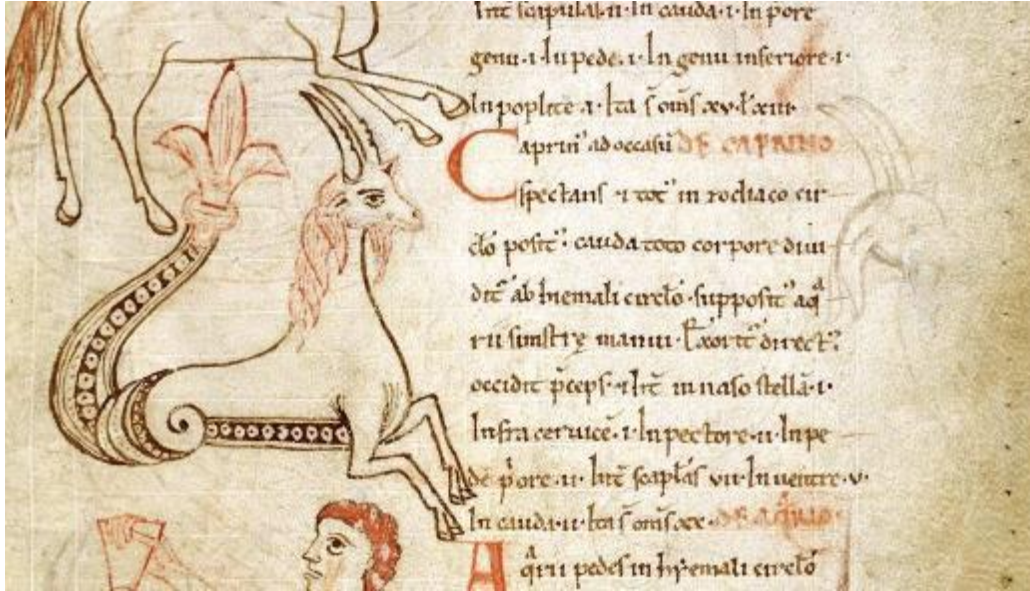 Int̄ scapulas·ii·In cauda·i·In p̄ore
genu·i·In pede·i·In genu inferiore·i·
In poplite·i·Ita s̄ om̄s xv·l̄ xiii·
Caprin᷒ ad occasū DE CAPRINO
spectans ·& tot᷒ in zodiaco cir
clo posit᷒· cauda toto corpore diui
dit᷒ ab hiemali circlo·supposit᷒ aq̄
rii sinistrę manui·Exorit᷒ direct᷒·
occidit p̄ceps· in naso stellā·i·
Infra ceruicē·i·In pectore·ii·In pe
de p̄ore·ii· Int̄ scaplas vii·In uentre·v·
In cauda·ii·Ita s̄ om̄s xx·DE AQRIO·
Aqrii pedes in hyemali circlo